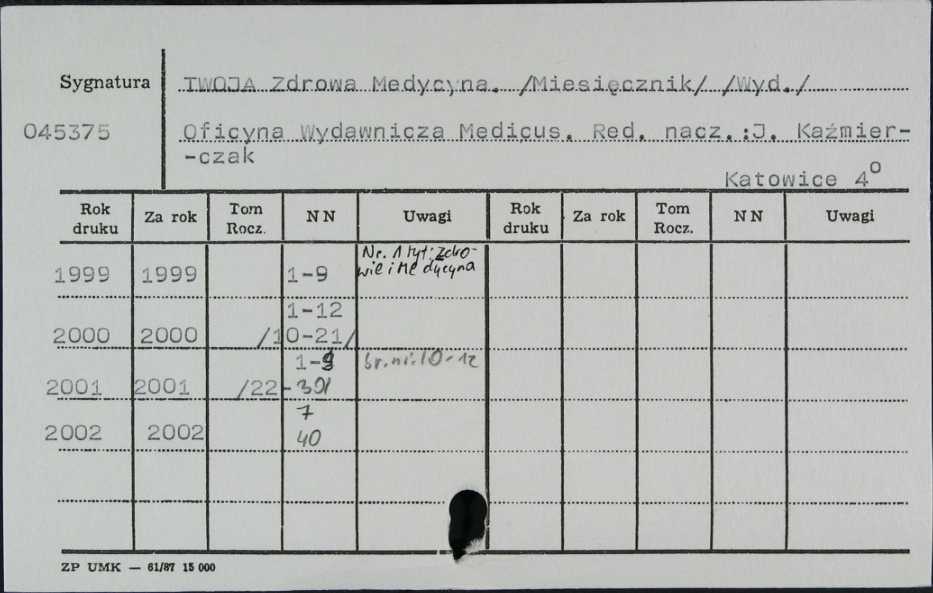 Sygnatura TWOJA Zdrowa Medycyna. /Miesięcznik/ /Wyd./
045375 Oficyna Wydawnicza Medicus. Red. nacz.:J. Kaźmier-
-czak
Katowice 4⁰
Rok druku Za rok Tom Rocz. NN Uwagi Rok druku Za rok Tom Rocz. NN Uwagi
Nr. 1 tyt: Zdro-
1999 1999 1-9 wie i Medycyna
1-12
2000 2000 /10-21/
1-9 br.nr. 10-12
2001 2001 /22-30/
7
2002 2002 40
ZP UMK — 61/87 15 000